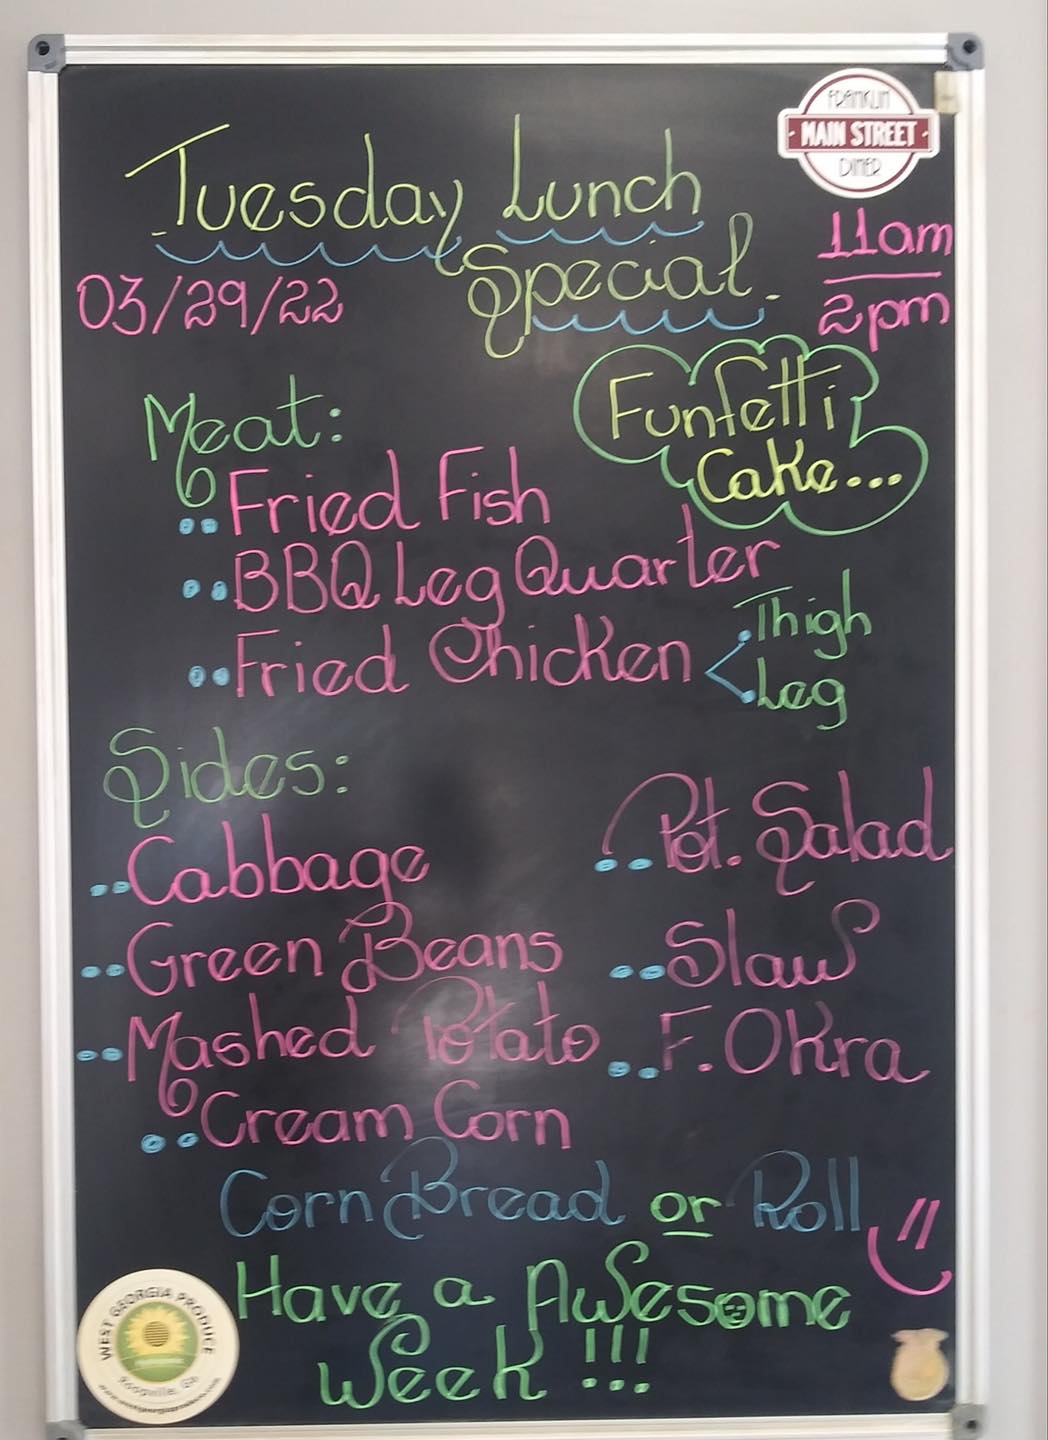 FRANKLIN
MAIN STREET
DINER
Tuesday Lunch
Special.
11am
2pm
03/29/22
Funfetti
Cake...
Meat:
Fried Fish
BBQ Leg Quarter
Fried Chicken
Thigh
Leg
Sides:
Cabbage
Pot. Salad
Green Beans
Slaw
Mashed Potato
F. Okra
Cream Corn
Corn Bread or Roll
Have a Awesome
Week !!!
WEST GEORGIA PRODUCE